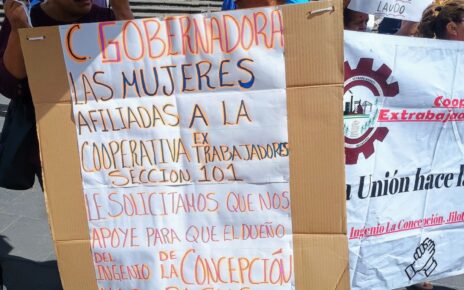 C GOBERNADORA
LAS MUJERES
AFILIADAS A LA
COOPERATIVA EX
TRABAJADORES
SECCION 101
LE SOLICITAMOS QUE NOS
APOYE PARA QUE EL DUEÑO
DEL INGENIO DE LA CONCEPCIÓN
LAUDO
Coop
Extrabajado
Unión hace l
Ingenio La Concepción, Jilo